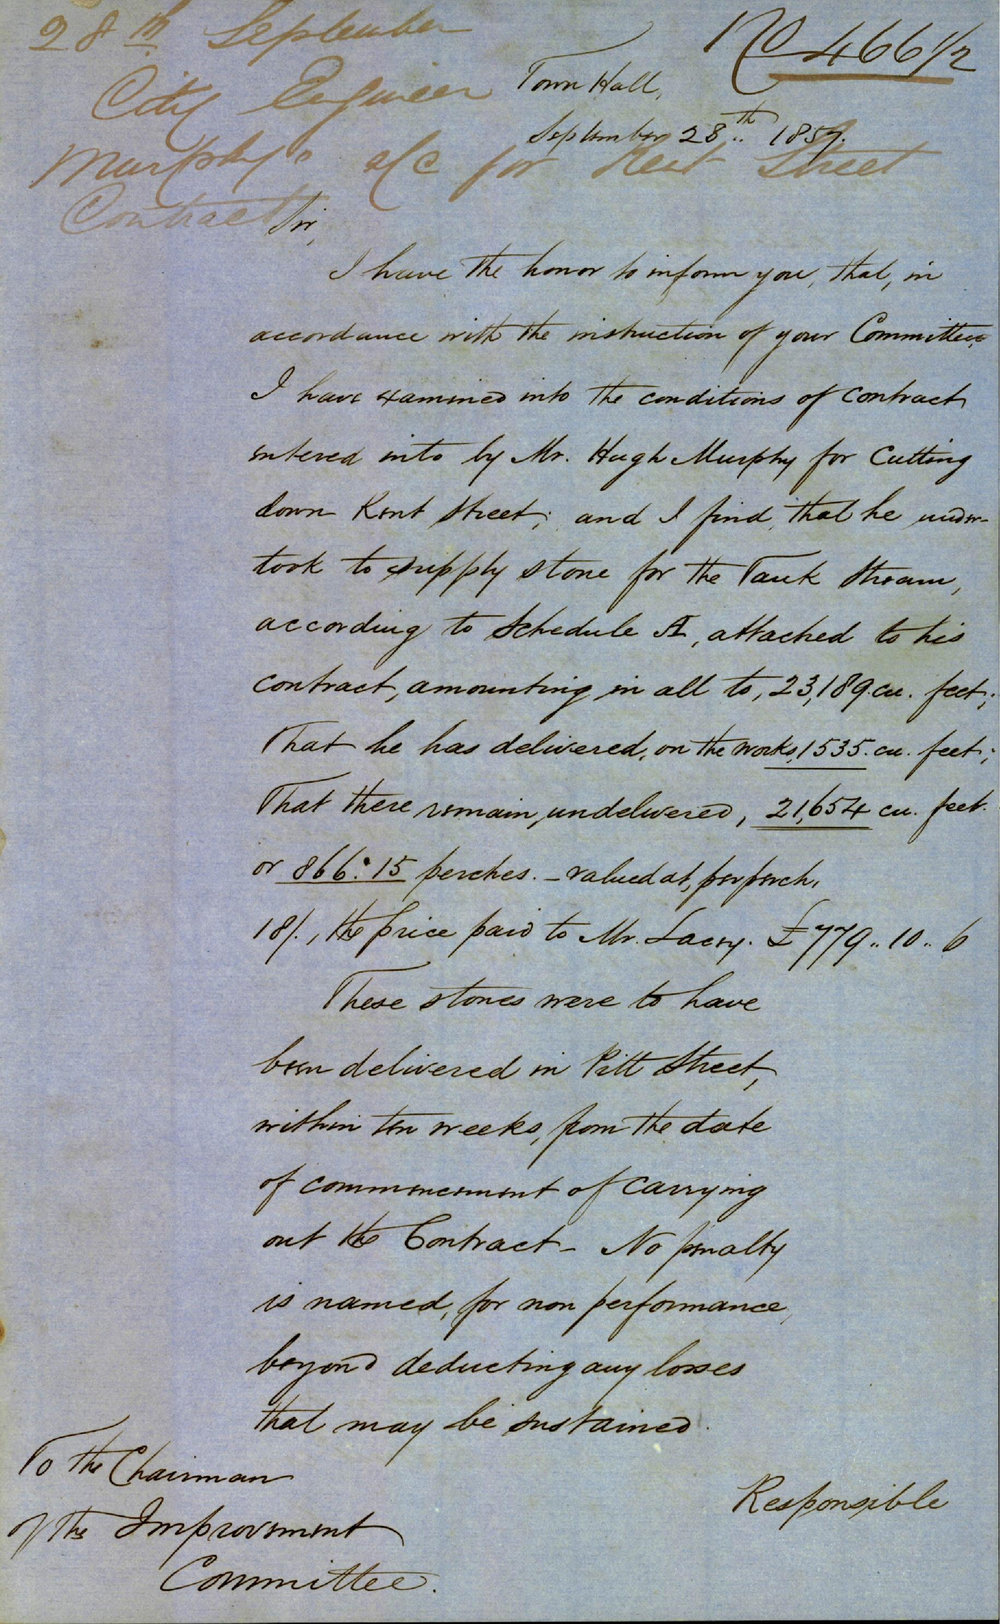 28th September
No 466 1/2
City Engineer
Town Hall,
September 28th 1857.
Murphy's a/c for Kent Street
Contract
Sir,
I have the honor to inform you, that, in
accordance with the instruction of your Committee,
I have examined into the conditions of contract
entered into by Mr. Hugh Murphy for Cutting
down Kent Street; and I find, that he under-
took to supply stone for the Tank Stream,
according to Schedule A, attached to his
contract, amounting in all to, 23,189 cu. feet;
That he has delivered, on the works, 1535. cu. feet;
That there remain, undelivered, 21,654 cu. feet.
or 866:15 perches. - valued at, per perch,
18/., the price paid to Mr. Lacey. £779.. 10.. 6
These stones were to have
been delivered in Pitt Street,
within ten weeks, from the date
of commencement of carrying
out the Contract - No penalty
is named, for non performance,
beyond deducting any losses
that may be sustained.
Responsible
To the Chairman
of the Improvement
Committee.